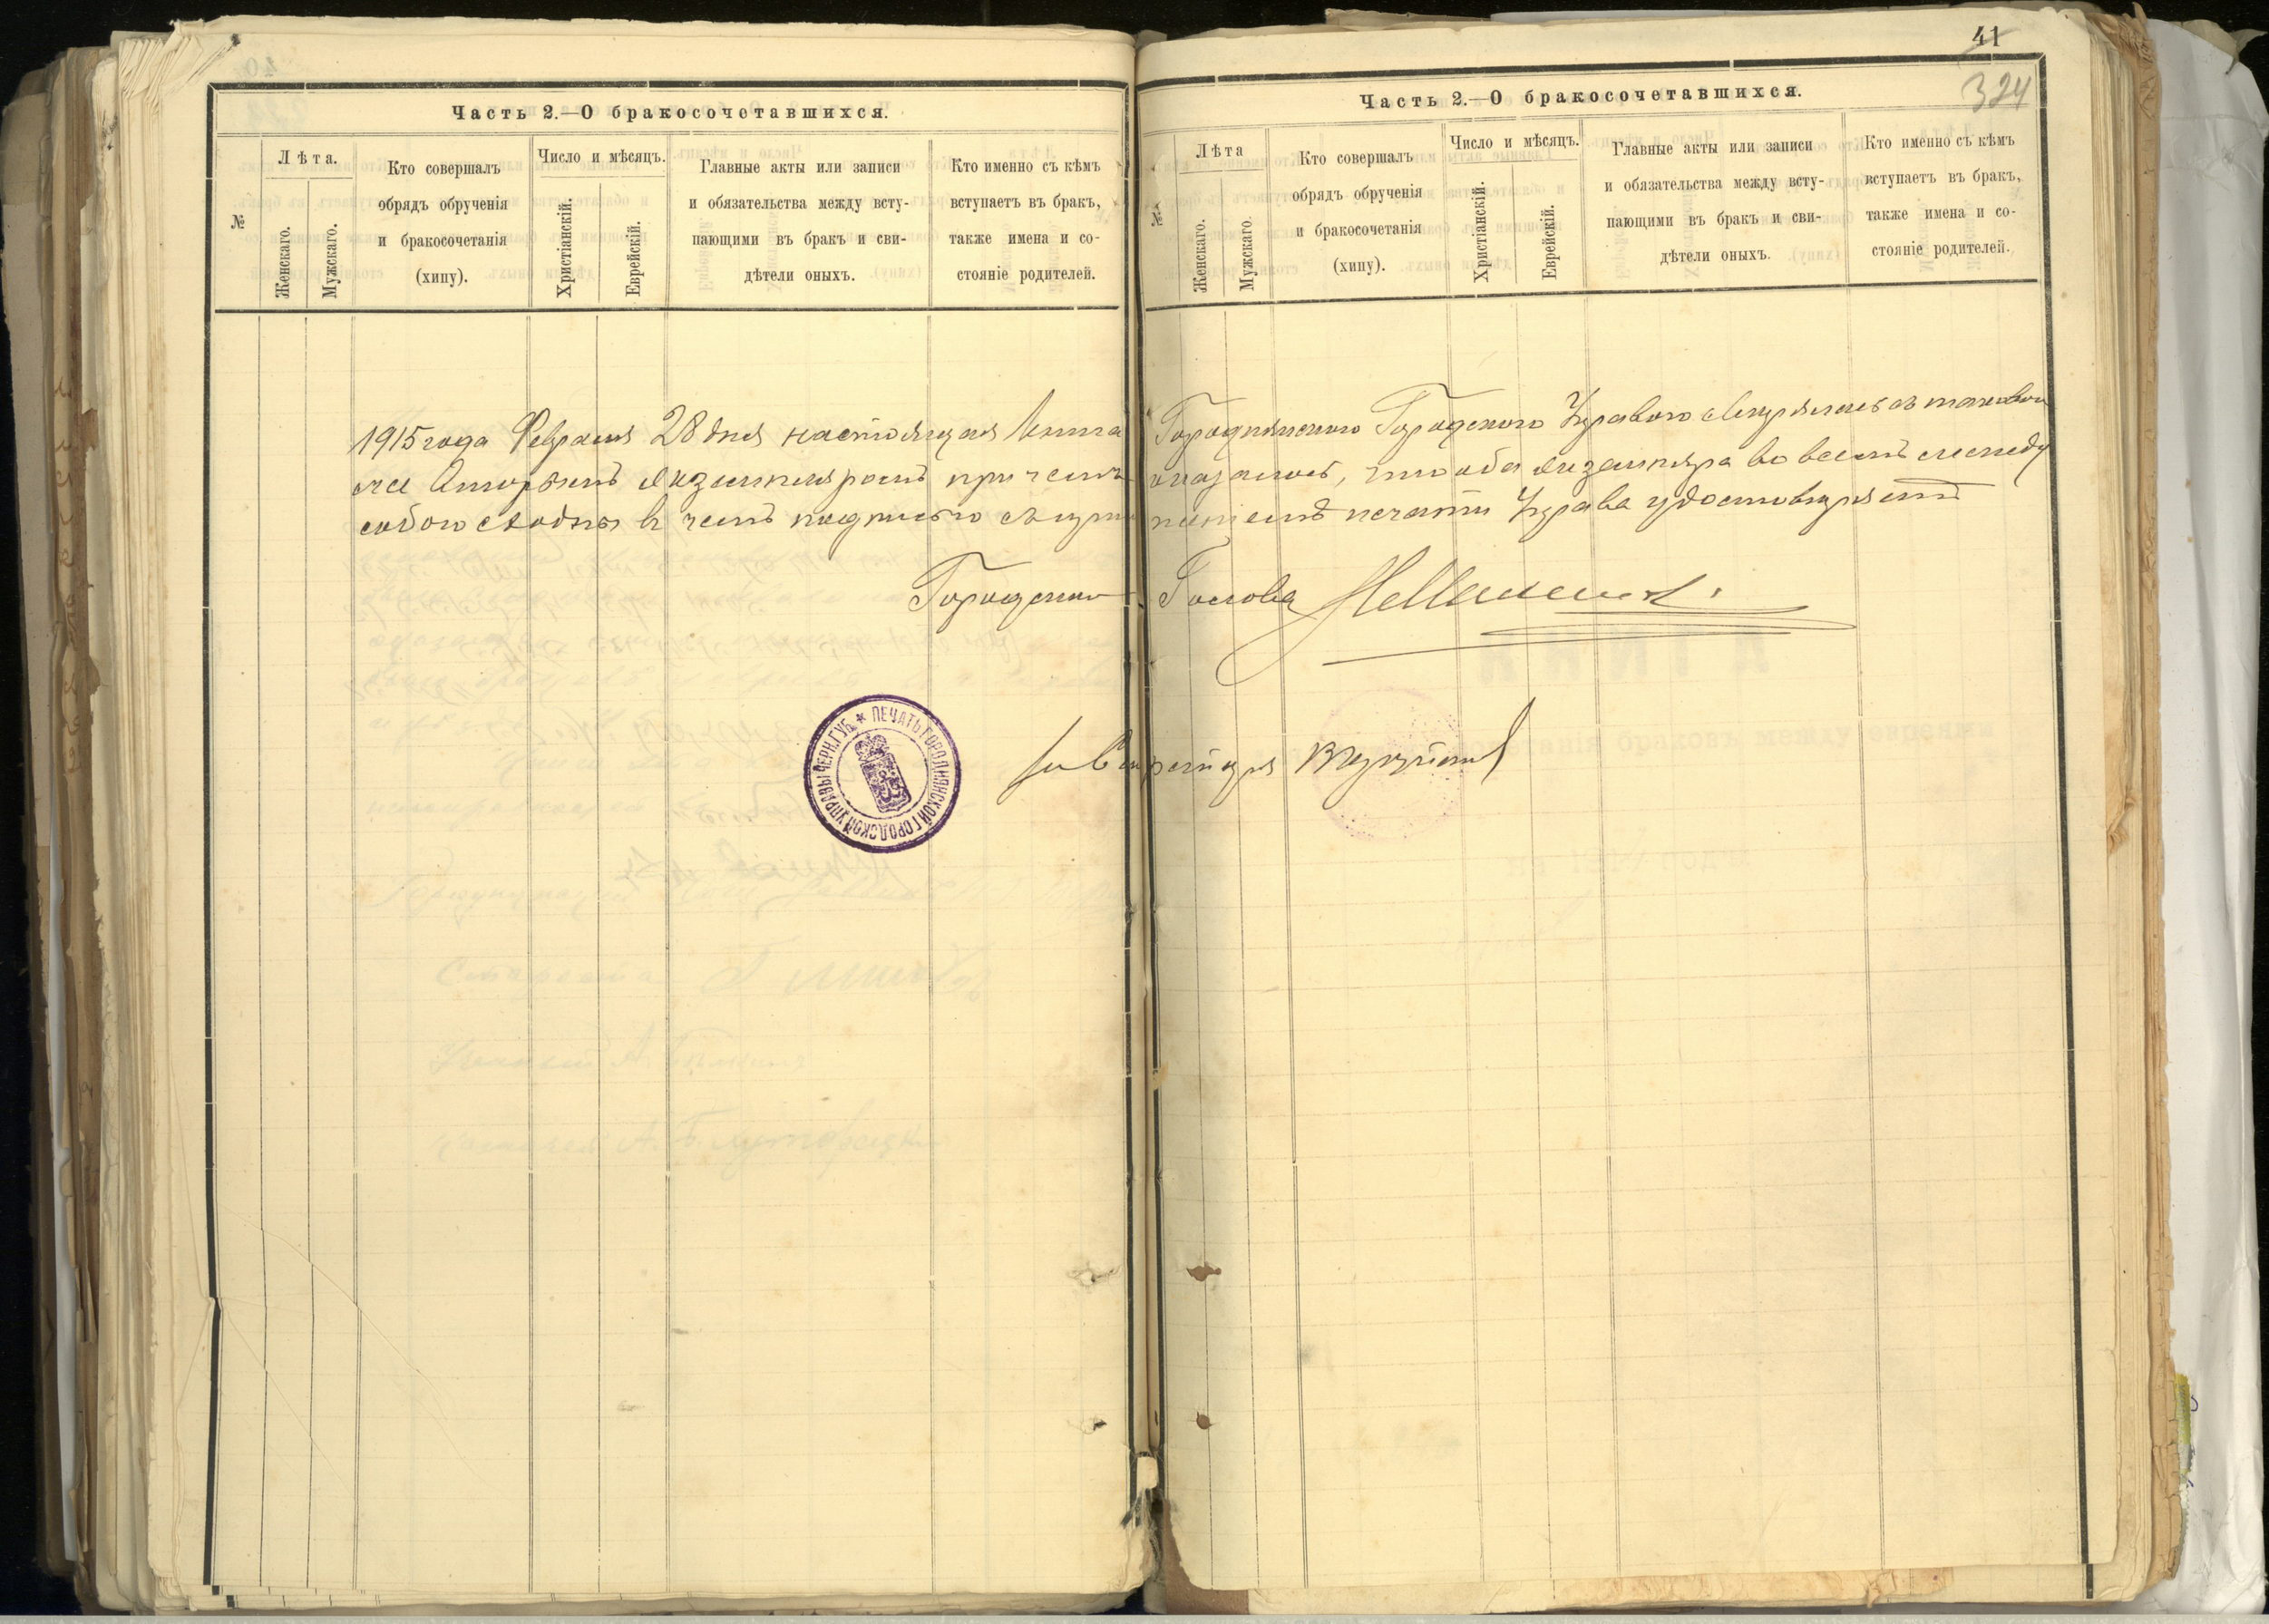 41
324
Часть 2.—О бракосочетавшихся.
№
Лѣта.
Женскаго.
Мужскаго.
Кто совершалъ
обрядъ обрученія
и бракосочетанія
(хипу).
Число и мѣсяцъ.
Христіанскій.
Еврейскій.
Главные акты или записи
и обязательства между всту-
пающими въ бракъ и сви-
дѣтели оныхъ.
Кто именно съ кѣмъ
вступаетъ въ бракъ,
также имена и со-
стояніе родителей.
Часть 2.—О бракосочетавшихся.
№
Лѣта
Женскаго.
Мужскаго
Кто совершалъ
обрядъ обрученія
и бракосочетанія
(хипу).
Число и мѣсяцъ.
Христіанскій.
Еврейскій.
Главные акты или записи
и обязательства между всту-
пающими въ бракъ и сви-
дѣтели оныхъ.
Кто именно съ кѣмъ
вступаетъ въ бракъ,
также имена и со-
стояніе родителей.
1915 года Февраля 28 дня настоящая Книга Городнянскою Городскою Управою свѣрялась съ таковою
же вторымъ экземпляромъ при чемъ оказалось, что оба экземпляра во всемъ между
собою сходны въ чемъ подписью съ приложеніемъ печати Управа удостовѣряетъ
Городской Голова
Секретаря
ПЕЧАТЬ ГОРОДНЯНСКОЙ ГОРОДСКОЙ УПРАВЫ ЧЕРН. ГУБ.